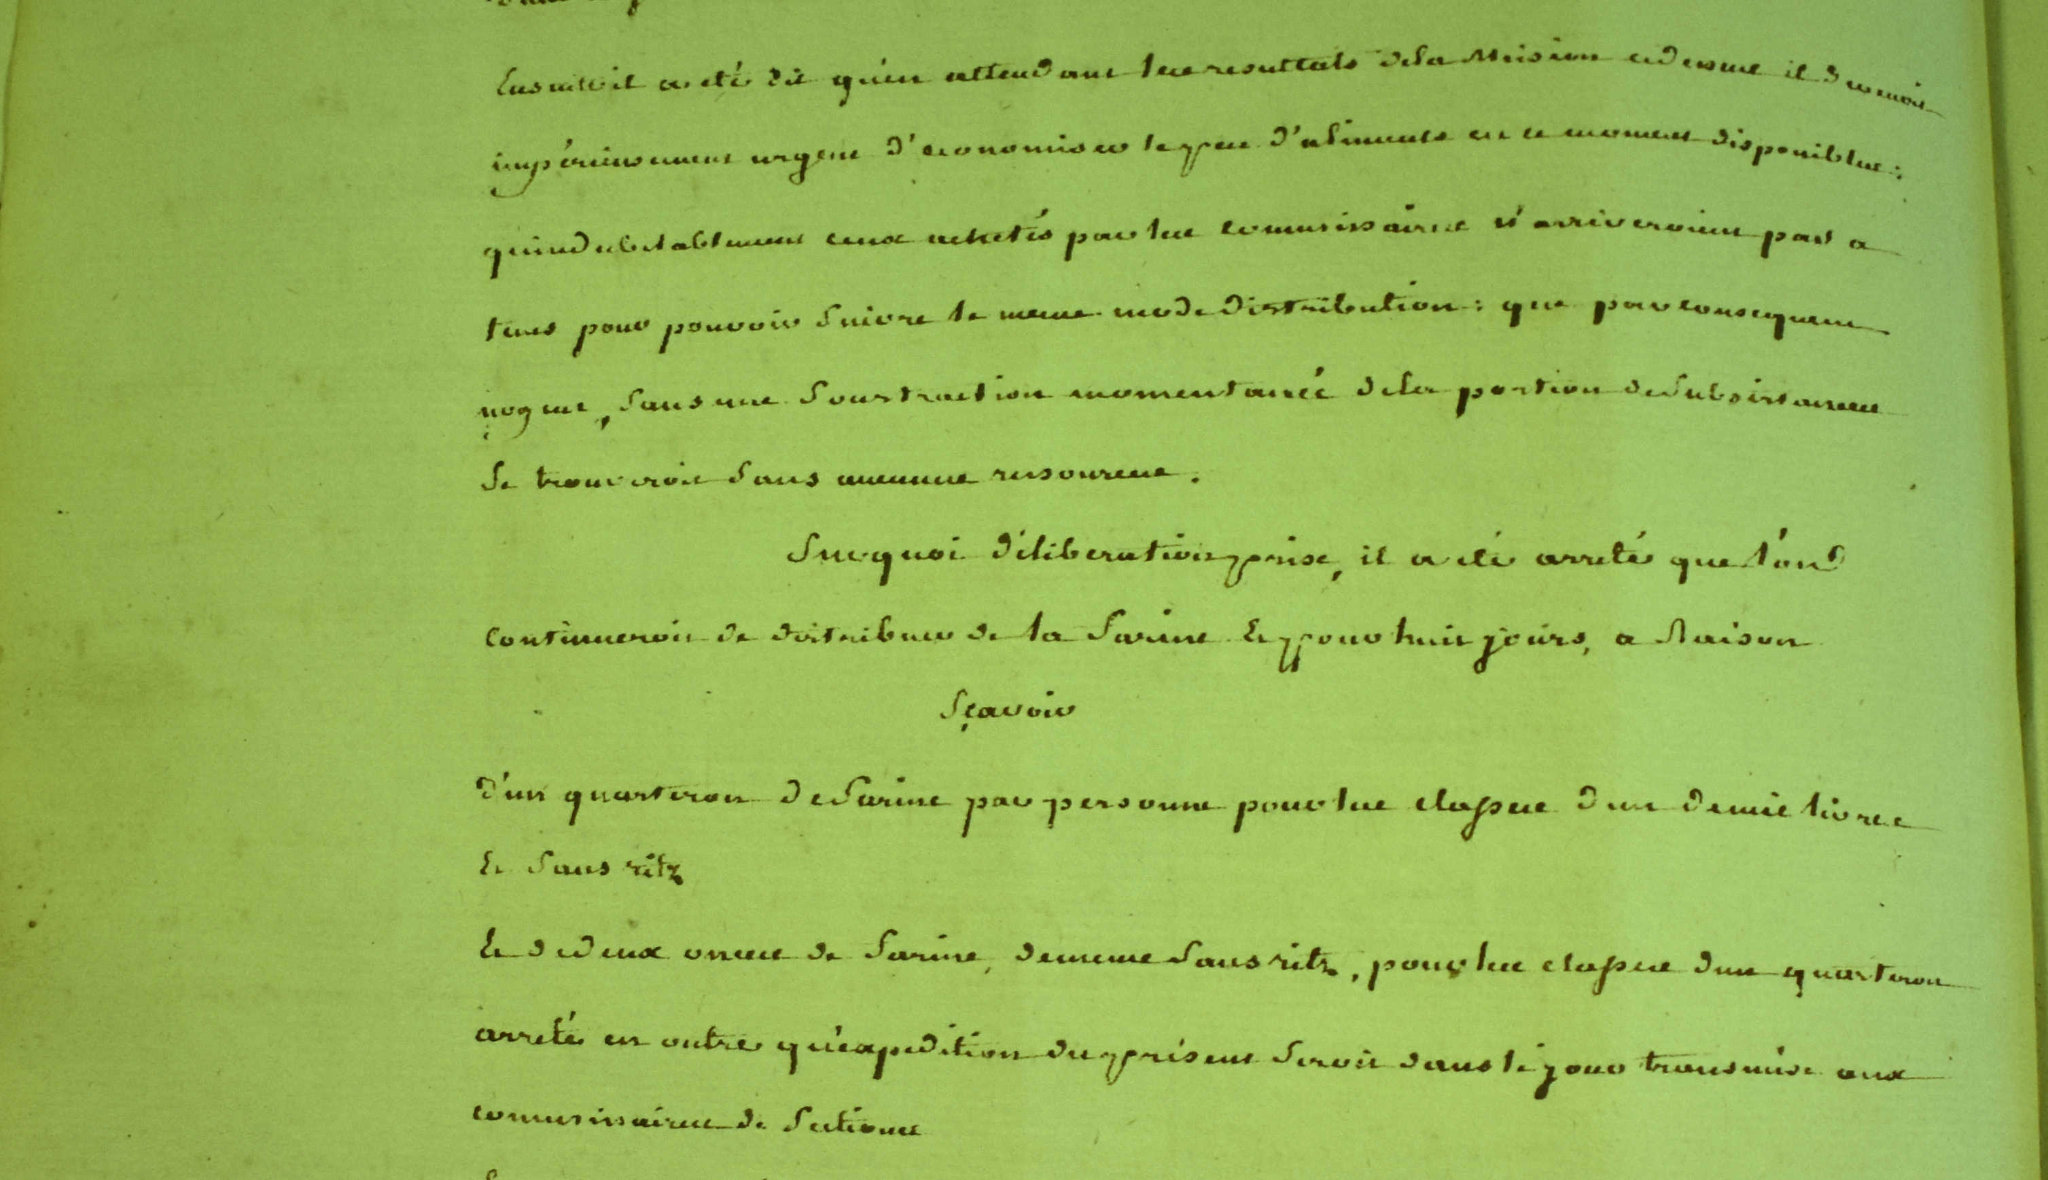 Ensuite il a eté dit qu'en attendant les resultats dela Mision cidessus il devenoit
impérieusement urgent d'economiser le peu d'aliments en ce moment disponibles :
qu'indubitablement ceux achetés par les commissaires n'arriveroient pas a
tems pour pouvoir suivre le meme mode distribution : que par consequent
, sans une soustraction momentanée dela portion de subsistances
se trouveroit sans aucunes resources.
Sur quoi déliberation prise, il a eté arreté que l'on
continueroit de distribuer de la farine Et pour huit jours, a Raison
Sçavoir
d'un quarteron de farine par personne pour les classes d'un demie livres
Et sans ritz
Et de deux onces de farine, dememe sans ritz, pour les classes d'un quarteron
arreté en outre qu'expedition du présent seroit dans le jour transmise aux
commissaires de sections